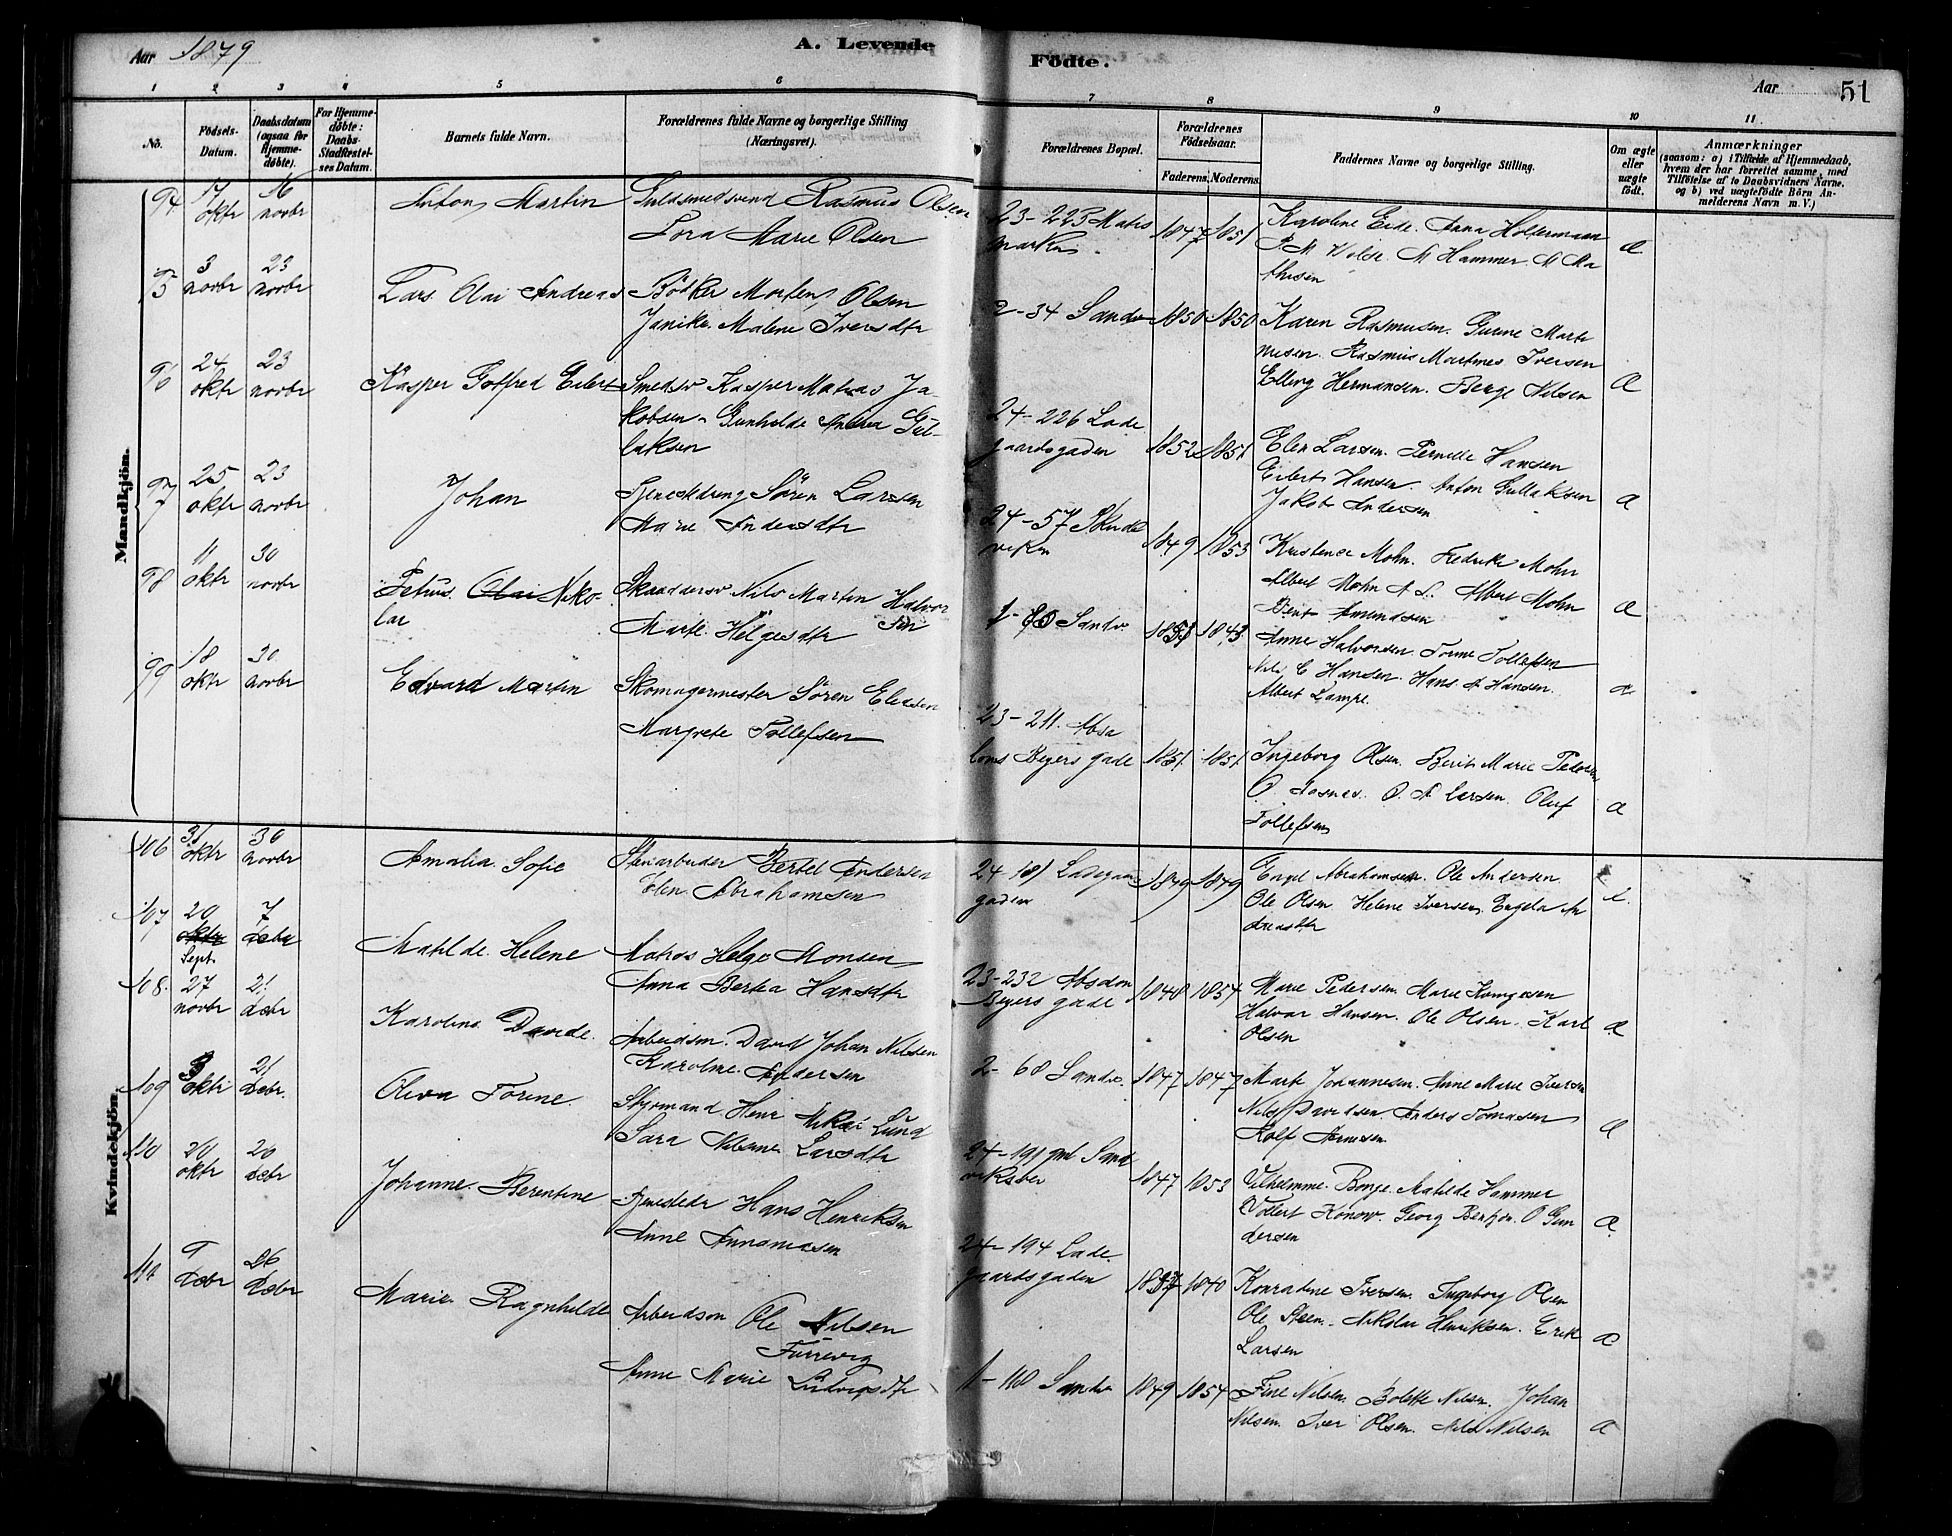 Aar 1879
A. Levende
Födte.
Aar
51
1 2 3 4 5 6 7 8 9 10 11
No.
Födsels-Datum.
Daabsdatum (ogsaa for Hjemme-døbte).
For Hjemme-døbte: Daabs-Stadfæstel-ses Datum.
Barnets fulde Navn.
Forældrenes fulde Navne og borgerlige Stilling
(Næringsvei).
Forældrenes Bopæl.
Forældrenes Födselsaar.
Faderens. Moderens.
Faddernes Navne og borgerlige Stilling.
Om ægte eller uægte født.
Anmærkninger
(saasom: a) i Tilfælde af Hjemmedaab,
hvem der har forrettet samme, med
Tilføielse af to Daabsvidners Navne,
og b) ved uægtefødte Börn An-
melderens Navn m. V.)
Mandkjön.
94 17 oktr 16 novbr Anton Martin Guldsmedsvend Rasmus Olsen
Tora Marie Olsen
23-223 Mats
marken 1847 1851 Karoline Eide. Anna Holtermann
P. M. Wolde. A Hammer. A Ma
thisen
Æ
95 3 novbr 23 novbr Lars Olai Andreas Bödker Morten Olsen
Janike Malene Iversdtr
2-34 Sandv 1850 1850 Karen Rasmusen. Gurine Marti
nusen. Rasmus Martines Iversen
Elling Hermansen. Berge Nilsen Æ
96 24 oktr 23 novbr Kasper Gotfred Eilert Smedsv Kasper Matias Ja-
kobsen - Gunhilde Andrea Gul-
laksen
24-226 Lade
gaardsgaden 1852 1851 Elen Larsen. Pernille Hansen
Eilert Hansen. Anton Gullaksen
Jakob Andersen Æ
97 25 oktr 23 novbr Johan Tjenestedreng Sören Larsen
Marie Andersdtr
24-57 Skude
viken 1849 1853 Kristence Mohn. Fredrike Mohn
Albert Mohn A S. Albert Mohn
Bent Amundsen Æ
98 11 oktr 30 novbr Petrus Olai Niko-
lai Skraddersv Nils Martin Halvor
sen
Marte Helgesdtr
1-80 Sandv. 1843 Anne Halvorsen. Torine Tollefsen
Nils C Hansen. Hans A Hansen.
Albert Lampe. Æ
99 18 oktr 30 novbr Edvard Martin Skomagermester Sören Eliesen
Margrete Tollefsen
23-211. Absa
lons Beyers gade 1851 1851 Ingeborg Olsen. Berit Marie Pedersen
O. Aasnes. O. A Larsen. Oluf
Tollefsen Æ
Kvindekjön.
106 31 oktr 30 novbr Amalia Sofie Stenarbeider Bertel Andersen
Elen Abrahamsen
24-181 Ladegaards
gaden 1849 1849 Engel Abrahamsen. Ole Andersen.
Ole Olsen Helene Iversen. Engela An
dreasdtr
107 20 oktr Sept 7 decbr Matilde Helene Matros Helge Monsen
Anna Bertea Hansdtr
23-232 Absalon
Beyers gade 1848 1854 Marie Pedersen. Marie
Halvar Hansen. Ole Olsen. Karl
Olsen Æ
108 27 novbr 21 decbr Karoline Davide. Arbeidsm. David Johan Nilsen
Karoline Andersen
2-68 Sandv. 1847 1847 Marte Johannesen. Anne Marie Iversen
Nils Davidsen. Anders Tomasen
Rolf Arnesen Æ
109 3 oktr 21 Decbr. Oleva Torine. Styrmand Henr Mikal Lund
Sara Nilsine Larsdtr
24-191 pnl Sand
viksvei 1847 1853 Vilhelmine Borge. Matilde Hammer
Vollert Konow. Georg Bentzon. O Gun
dersen Æ
110 20 oktr 26 decbr Johanne Berentine Tjenestedr Hans Henriksen
Anne Annanиasen
24-194 Lade
gaardsgaden 1837 1840 Konradine Iversen. Ingeborg Olsen
Ole Steen. Nikolai Henriksen. Erik
Larsen Æ
111 9 Decbr 26 Decbr Marie Ragnhilde Arbeidsm Ole Nilsen
Furevig
Anne Marie Ludvigsdtr
1-110 Sandv 1849 1854 Fine Nilsen. Bolette Nilsen. Johan
Nilsen. Iver Olsen. Nils Nilsen Æ